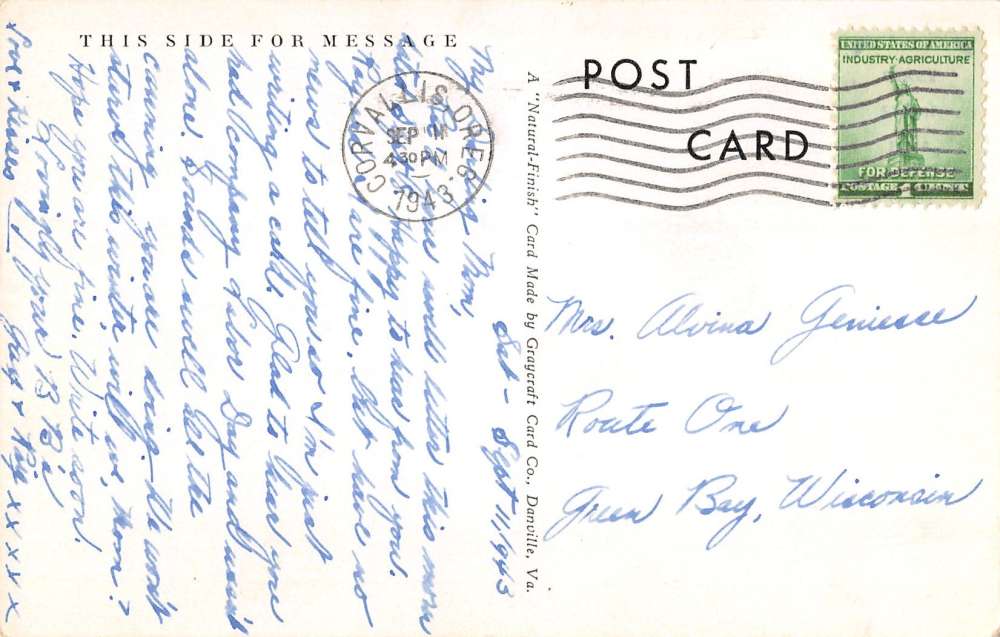 THIS SIDE FOR MESSAGE
Sat - Sept 11, 1943
My Darling Mom,
your swell letter this morn
Happy to hear from you.
are fine, but have no
news to tell you so I'm just
writing a card. Glad to hear you
had company Labor Day and wasn't
alone. Sounds swell all the
canning you are doing - We won't
starve this winter, will we, Mom?
Hope you are fine. Write soon!
Lovingly your
Love & Kisses
x x x x x
A "Natural-Finish" Card Made by Graycraft Card Co., Danville, Va.
POST
CARD
CORVALLIS, OREG.
SEP 11
4 30 PM
1943
UNITED STATES OF AMERICA
INDUSTRY·AGRICULTURE
FOR DEFENSE
POSTAGE 1 CENT
Mrs. Alvina Geniesse
Route One
Green Bay, Wisconsin